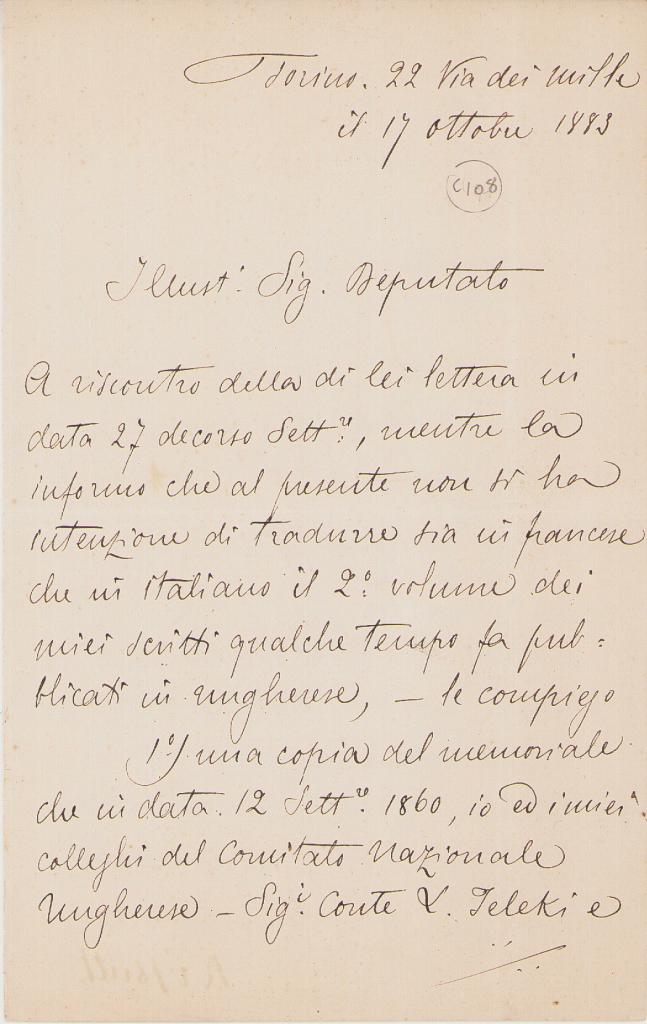 Torino. 22 Via dei Mille
il 17 ottobre 1883
C108
Illust. Sig. Deputato
A riscontro della di lei lettera in
data 27 decorso Settre, mentre la
informo che al presente non si ha
intenzione di tradurre sia in francese
che in italiano il 2o. volume dei
miei scritti qualche tempo fa pub=
blicati in ungherese, – le compiego
1o) una copia del memoriale
che in data 12 Settre. 1860, io ed i miei
colleghi del Comitato Nazionale
Ungherese – Sigi. Conte L. Teleki e